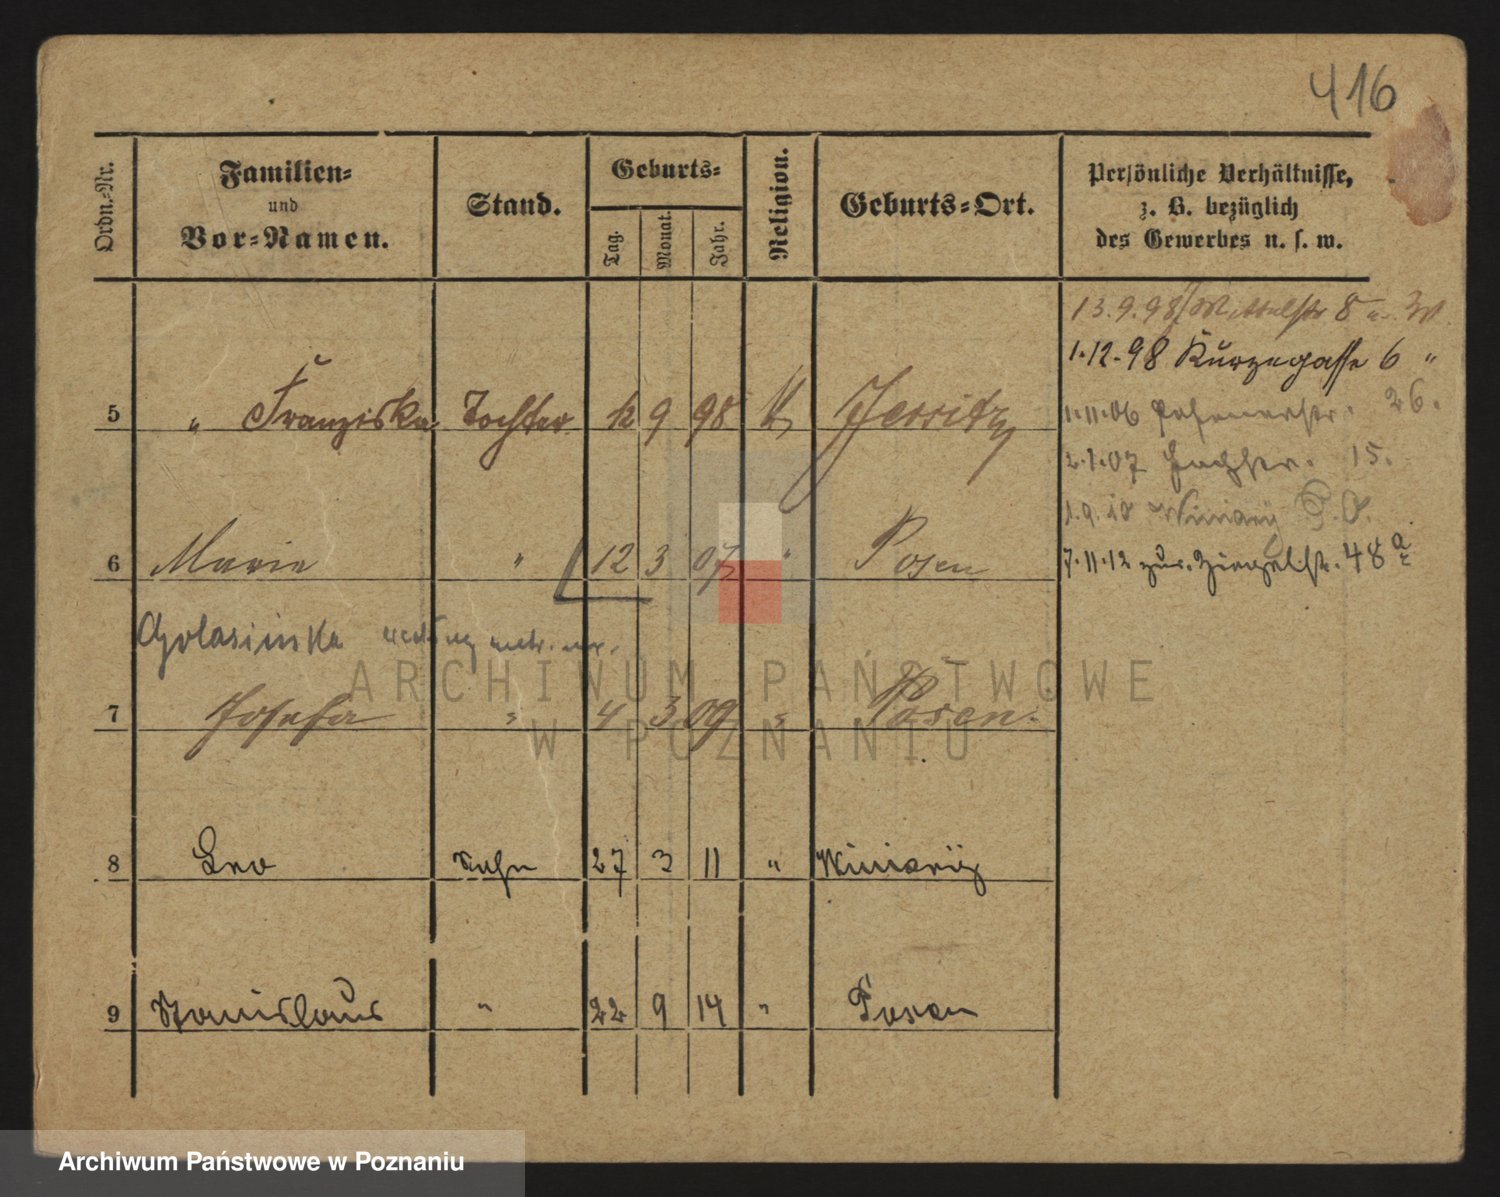 416
Ordn.-Nr.
Familien-
und
Vor-Namen.
Stand.
Geburts-
Tag.
Monat.
Jahr.
Religion.
Geburts-Ort.
Persönliche Verhältnisse,
z. B. bezüglich
des Gewerbes u. s. w.
13.9.98 8
1.12.98 Kurzegasse 6 "
5 " Franziska Tochter 12 9 98 K Jerritz
1.11.06 26.
2.1.07 15.
1.9.10 Winiary
6 Marie " 12 3 07 " Posen
7.11.12 zur. Ziegelstr. 48a
Golasinska
7 Josefa " 4 3 09 " Posen.
8 Leo Sohn 27 3 11 " Winiary
9 Stanislaus " 22 9 14 " Posen
ARCHIWUM PAŃSTWOWE
W POZNANIU
Archiwum Państwowe w Poznaniu